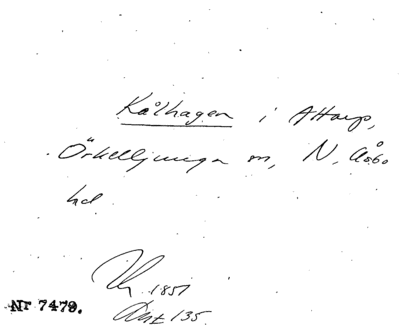 Kålhagen i Attarp,
Örkelljunga sn, N. Åsbo
hd
1851
135.
Nr 7479.